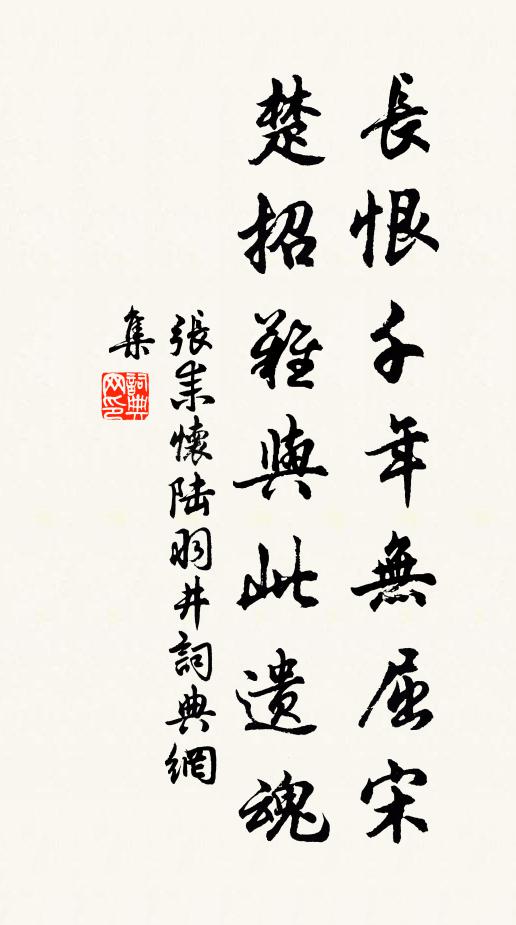 長恨千年無屈宋
楚招難與此遺魂
張耒懷陆羽井詞典網
集
詞典
网印